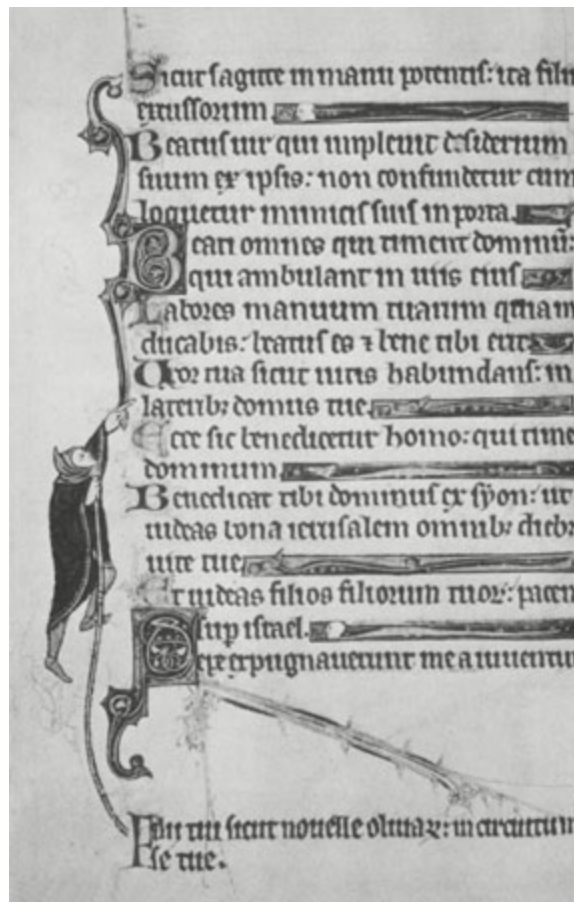 Sicut sagitte in manu potentis: ita filii
excussorum
Beatus uir qui impleuit desiderium
suum ex ipsis: non confundetur cum
loquetur inimicis suis in porta.
Beati omnes qui timent dominū:
qui ambulant in uiis eius
Labores manuum tuarum quia man
ducabis: beatus es ⁊ bene tibi erit
Uxor tua sicut uitis habundans: in
laterib; domus tue
Ecce sic benedicetur homo: qui time
dominum
Benedicat tibi dominus ex syon: ut
uideas bona ierusalem omnib; dieb;
uite tue
Et uideas filios filiorum tuoꝝ: pacem
sup israel.
Sepe expugnauerunt me a iuuentu
Filii tui sicut nouelle oliuaꝝ: in circuitum
se tue.